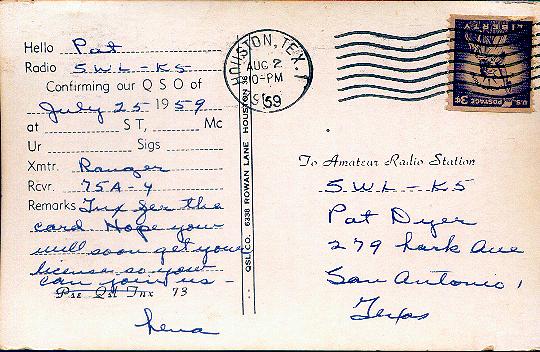 Hello Pat
Radio SWL-K5
Confirming our Q S O of
July 25 1959
at S T, Mc
Ur Sigs
Xmtr. Ranger
Rcvr. 75A-4
Remarks Tnx for the
card Hope you
will soon get your
license so you
can join us -
Pse Qsl Tnx 73
Lena
QSL CO. 6338 ROWAN LANE HOUSTON 36
HOUSTON, TEX.
AUG 2
10-PM
1959
LIBERTY
U.S. POSTAGE 3¢
To Amateur Radio Station
SWL-K5
Pat Dyer
279 Lark Ave
San Antonio,
Texas